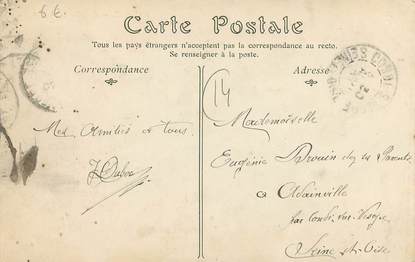 6 €
Carte Postale
Tous les pays étrangers n'acceptent pas la correspondance au recto.
Se renseigner à la poste.
Correspondance
Adresse
14
Mes Amitiés à tous.
Mademoiselle
Eugénie Drouin chez ses Parents
à Adainville
par Condé-sur-Vesgre
Seine-et-Oise